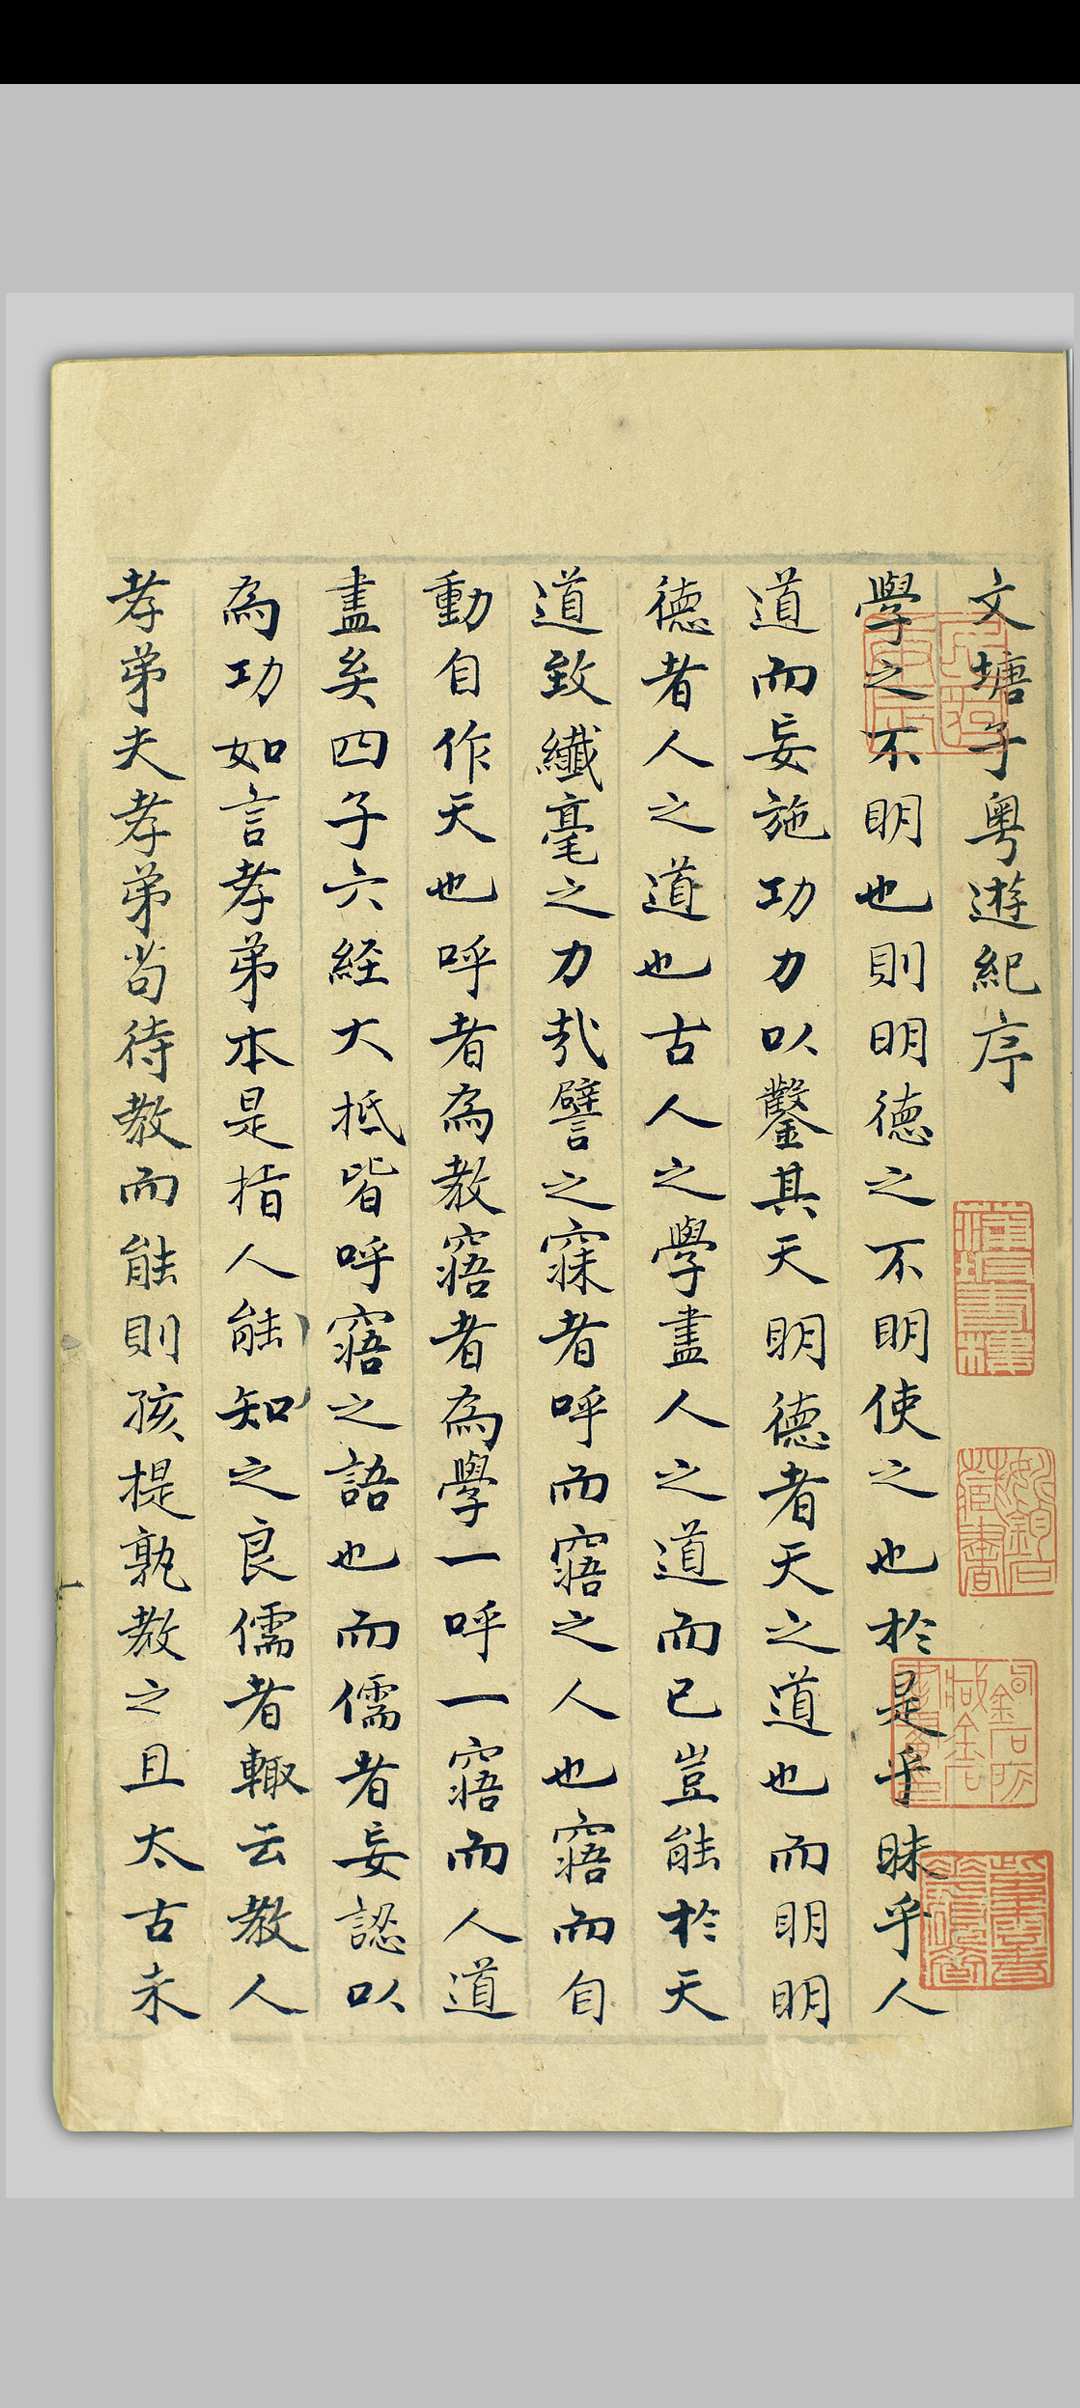 文塘子粤遊紀序
學之不明也則明德之不明使之也於是乎昧乎人
道而妄施功力以鑿其天明德者天之道也而明明
德者人之道也古人之學盡人之道而已豈能於天
道致纖毫之力哉譬之寐者呼而寤之人也寤而自
動自作天也呼者為教寤者為學一呼一寤而人道
盡矣四子六經大抵皆呼寤之語也而儒者妄認以
為功如言孝弟本是指人能知之良儒者輙云教人
孝弟夫孝弟尚待教而能則孩提孰教之且太古未